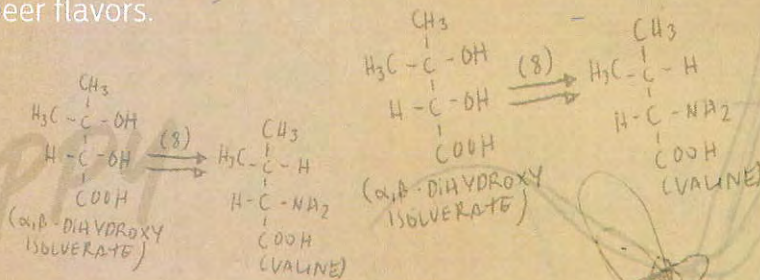 eer flavors.
CH3
H3C - C - OH
H - C - OH
COOH
(α,β-DIHYDROXY
ISOLVERATE)
(8)
CH3
H3C - C - H
H - C - NH2
COOH
(VALINE)
CH3
H3C - C - OH
H - C - OH
COOH
(α,β-DIHYDROXY
ISOLVERATE)
(8)
CH3
H3C - C - H
H - C - NH2
COOH
(VALINE)